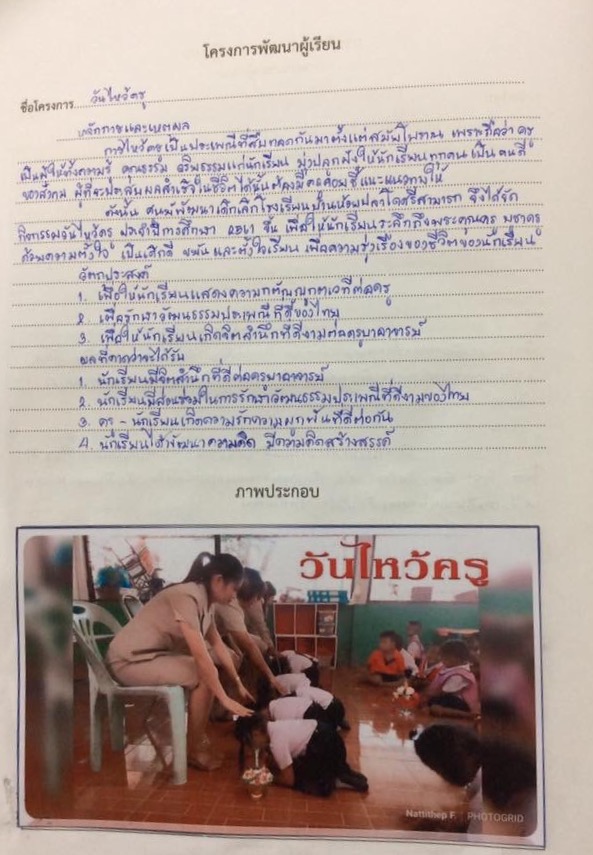 โครงการพัฒนาผู้เรียน
ชื่อโครงการ วันไหว้ครู
หลักการและเหตุผล
การไหว้ครูเป็นประเพณีที่สืบทอดกันมาตั้งแต่สมัยโบราณ เพราะถือว่า ครู
เป็นผู้ให้ทั้งความรู้ คุณธรรม จริยธรรมแก่นักเรียน มุ่งปลูกฝังให้นักเรียนทุกคนเป็นคนดี
ของสังคม ผู้ที่จะประสบผลสำเร็จในชีวิตได้นั้นต้องมีครูคอยชี้แนะแนวทางให้
ดังนั้น ศูนย์พัฒนาเด็กเล็กโรงเรียนบ้านน้อยปลาโดศรีสามารถ จึงได้จัด
กิจกรรมวันไหว้ครู ประจำปีการศึกษา 2561 ขึ้น เพื่อให้นักเรียนระลึกถึงพระคุณครู บูชาครู
ด้วยความตั้งใจ เป็นเด็กดี ขยันและตั้งใจเรียน เพื่อความรุ่งเรืองของชีวิตของนักเรียน
วัตถุประสงค์
1. เพื่อให้นักเรียนแสดงความกตัญญูกตเวทีต่อครู
2. เพื่อรักษาวัฒนธรรมประเพณีที่ดีของไทย
3. เพื่อให้นักเรียนเกิดจิตสำนึกที่ดีงามต่อครูบาอาจารย์
ผลที่คาดว่าจะได้รับ
1. นักเรียนมีจิตสำนึกที่ดีต่อครูบาอาจารย์
2. นักเรียนมีส่วนร่วมในการรักษาวัฒนธรรมประเพณีที่ดีงามของไทย
3. ครู - นักเรียนเกิดความรักความผูกพันที่ดีต่อกัน
4. นักเรียนได้พัฒนาความคิด มีความคิดสร้างสรรค์
ภาพประกอบ
วันไหว้ครู
Nattithep F. | PHOTOGRID